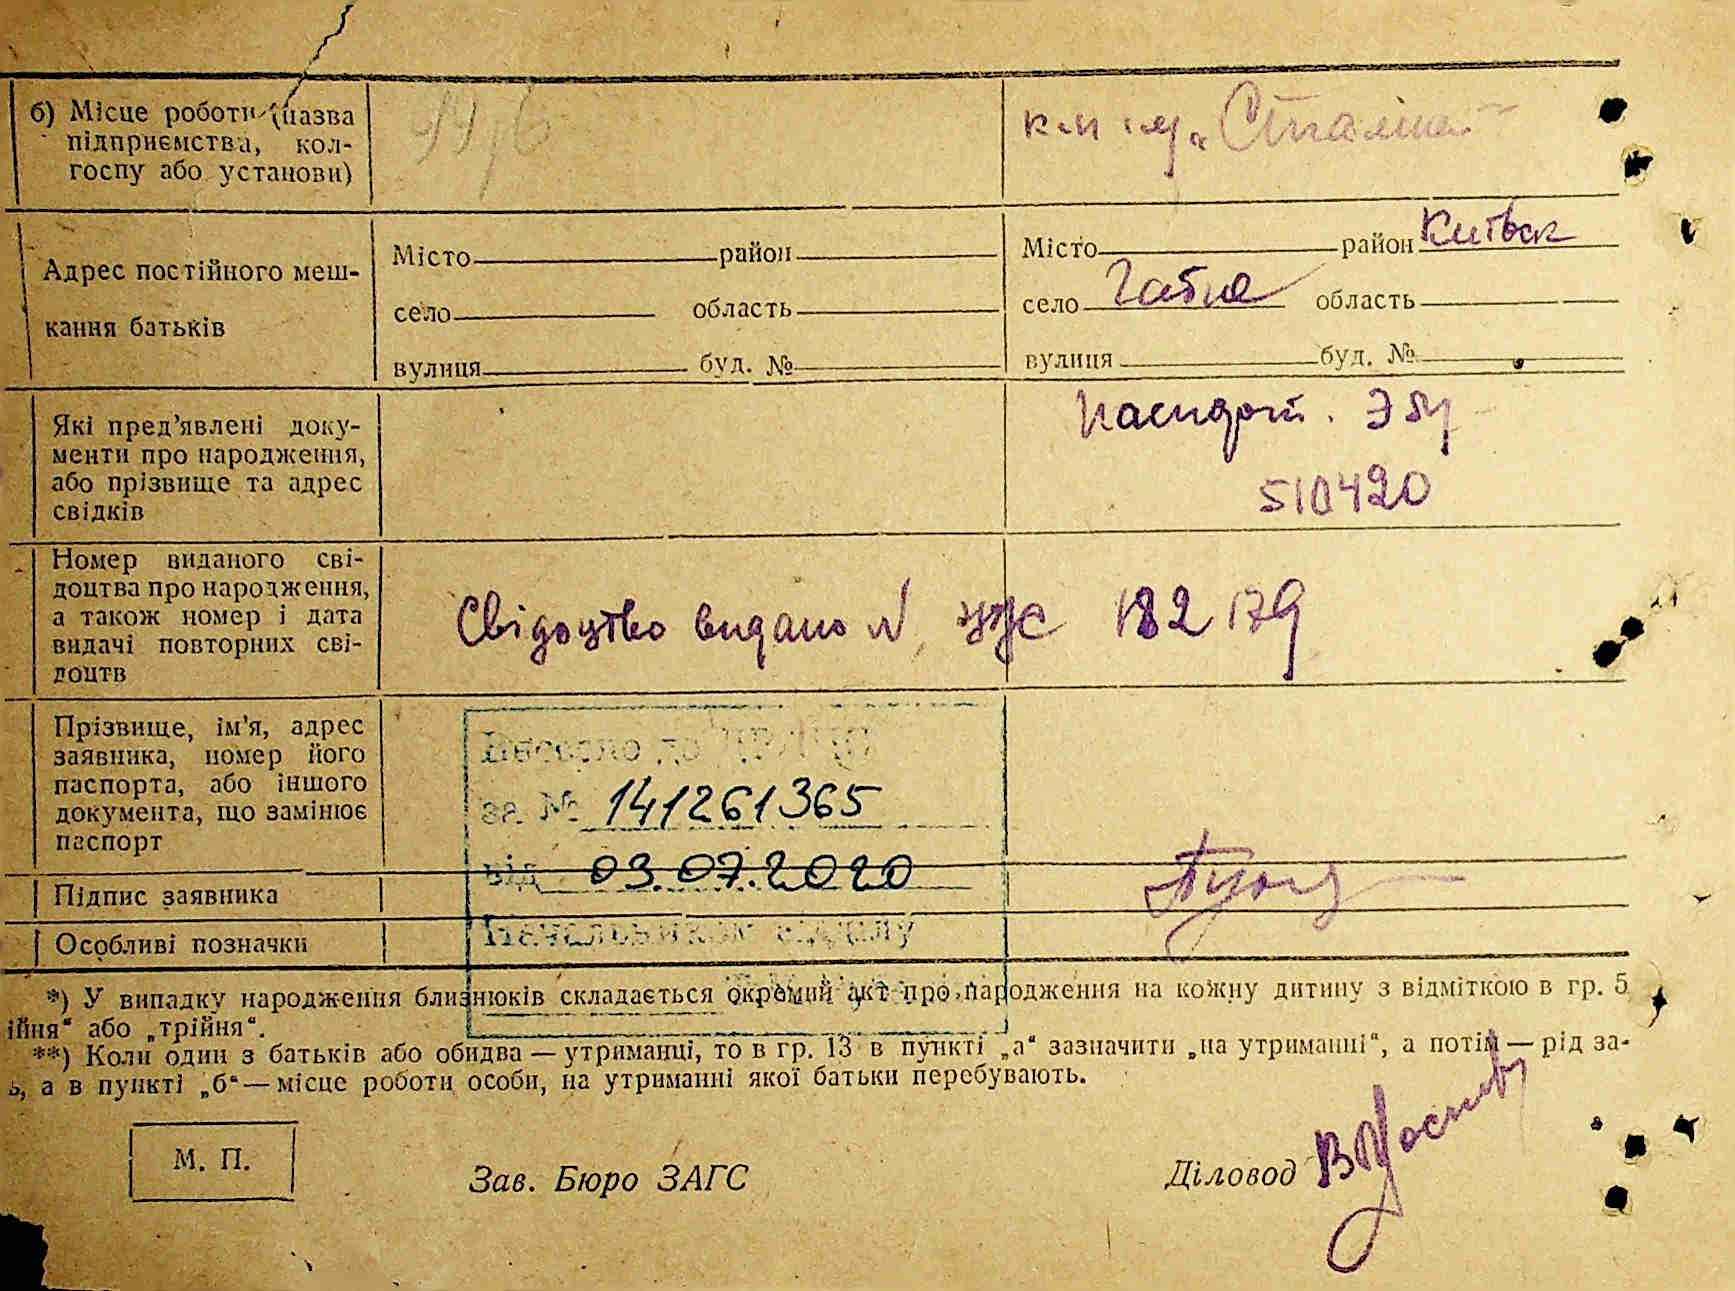 б) Місце роботи (назва
підприємства, кол-
госпу або установи)
Адрес постійного меш-
кання батьків
Місто район
село область
вулиця буд. №
Місто район Київськ
село Гатне область
вулиця буд. №
Які пред'явлені доку-
менти про народження,
або прізвище та адрес
свідків
Паспорт.
510420
Номер виданого сві-
доцтва про народження,
а також номер і дата
видачі повторних сві-
доцтв
Свідоцтво видано N 182179
Прізвище, ім'я, адрес
заявника, номер його
паспорта, або іншого
документа, що замінює
паспорт
за № 141261365
від 03.07.2020
Начальником відділу
Підпис заявника
Особливі позначки
*) У випадку народження близнюків складається окремий акт про народження на кожну дитину з відміткою в гр. 5
ійня“ або „трійня“.
**) Коли один з батьків або обидва — утриманці, то в гр. 13 в пункті „а“ зазначити „на утриманні“, а потім — рід за-
ь, а в пункті „б“ — місце роботи особи, на утриманні якої батьки перебувають.
М. П.
Зав. Бюро ЗАГС
Діловод